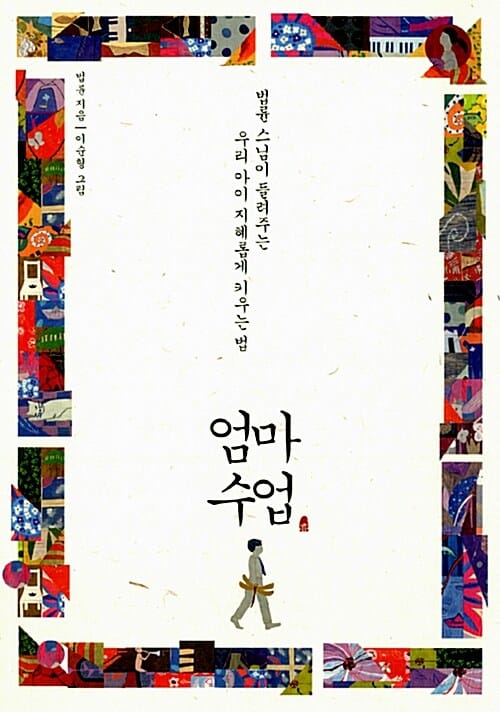 법륜 스님이 들려주는
우리 아이 지혜롭게 키우는 법
법륜 지음 | 이순형 그림
엄마
수업